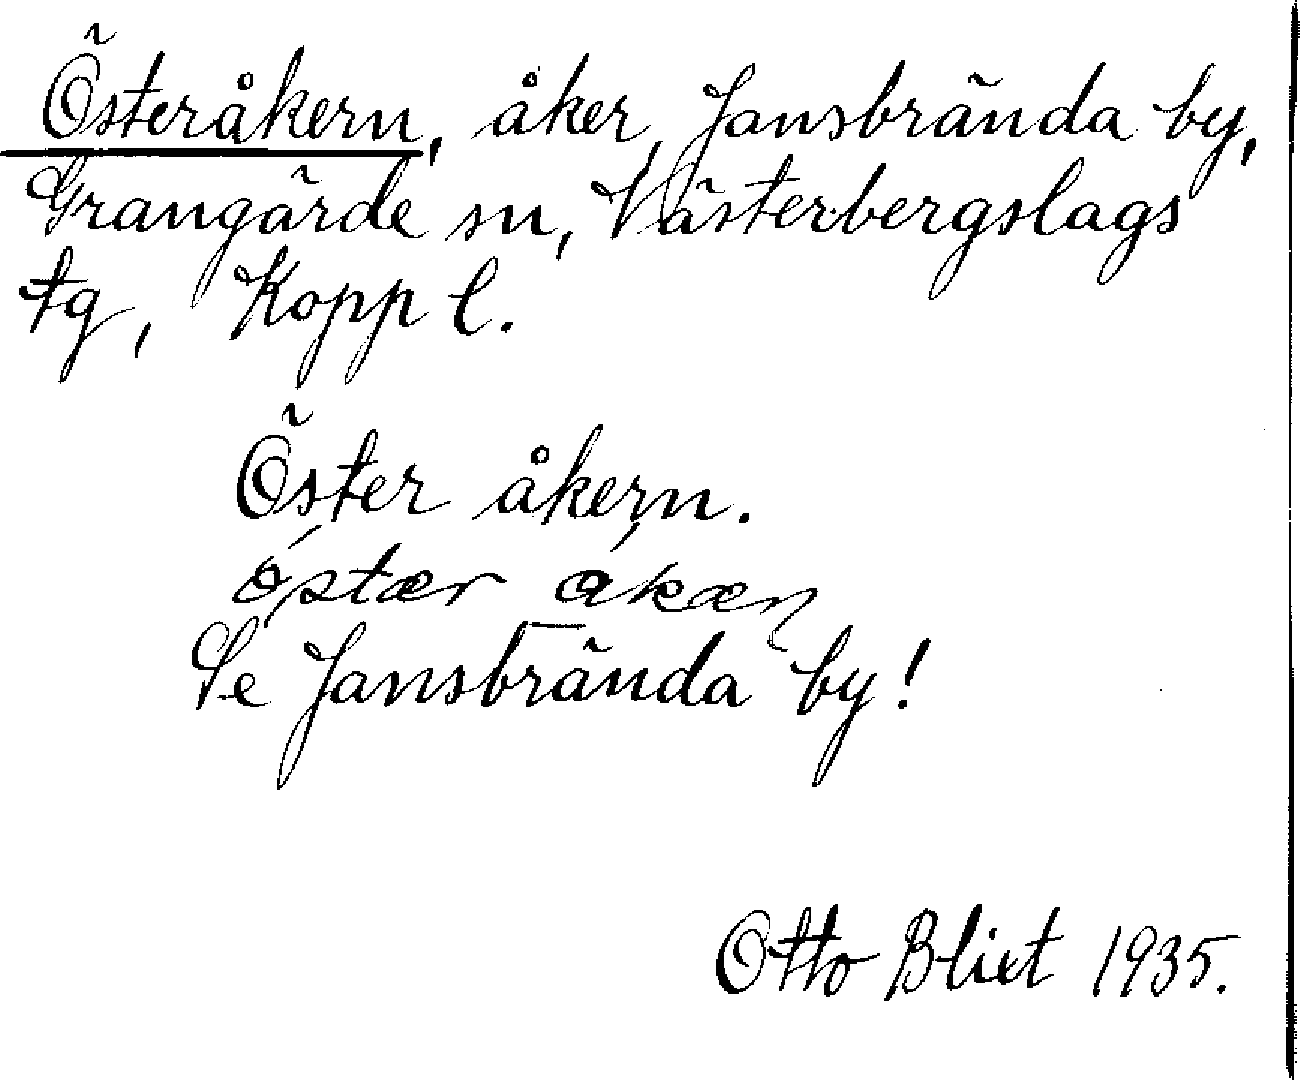 Österåkern, åker, Jansbrända by,
Grangärde sn, Västerbergslags
tg, Kopp l.
Öster åkern.
óstær åkæn
Se Jansbrända by!
Otto Blixt 1935.